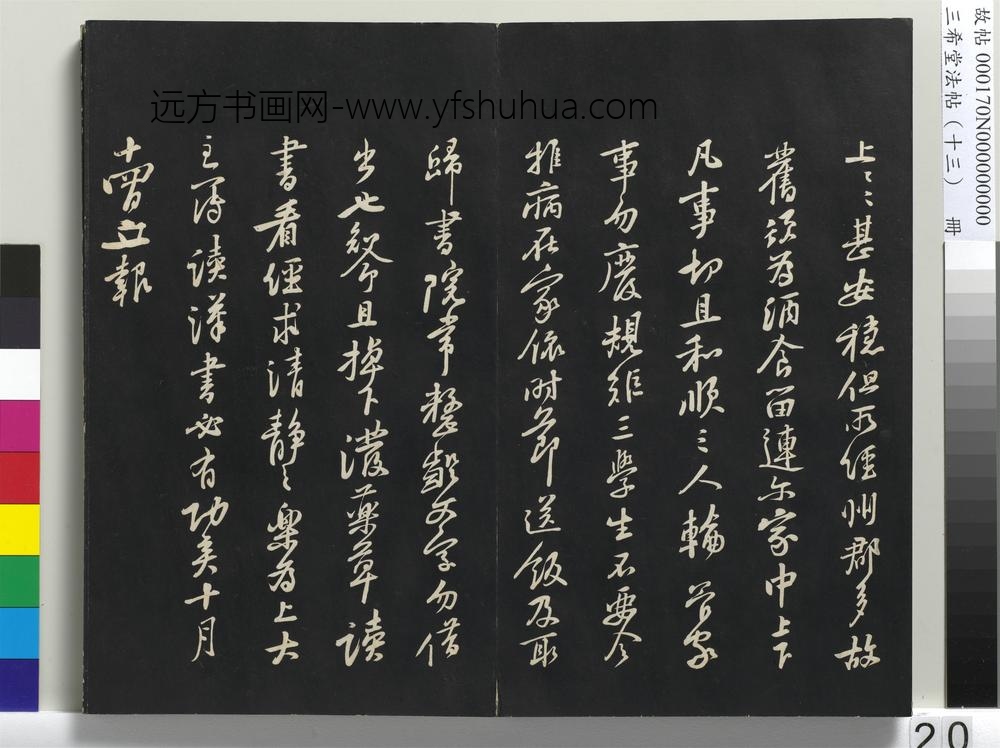 远方书画网-www.yfshuhua.com
故帖 000170N000000000
三希堂法帖（十三） 册
上〻甚安穩但所經州郡多故
舊頗為酒食留連尔家中上下
凡事切且和順三人輪管家
事勿廢規矩三學生不要令
推病在家依時節送飯及取
歸書院常整齪文字勿借
出也知命且掉下潑藥草讀
書看經求清静之樂為上大
主簿讀漢書必有功矣十月
十一曾立報
20